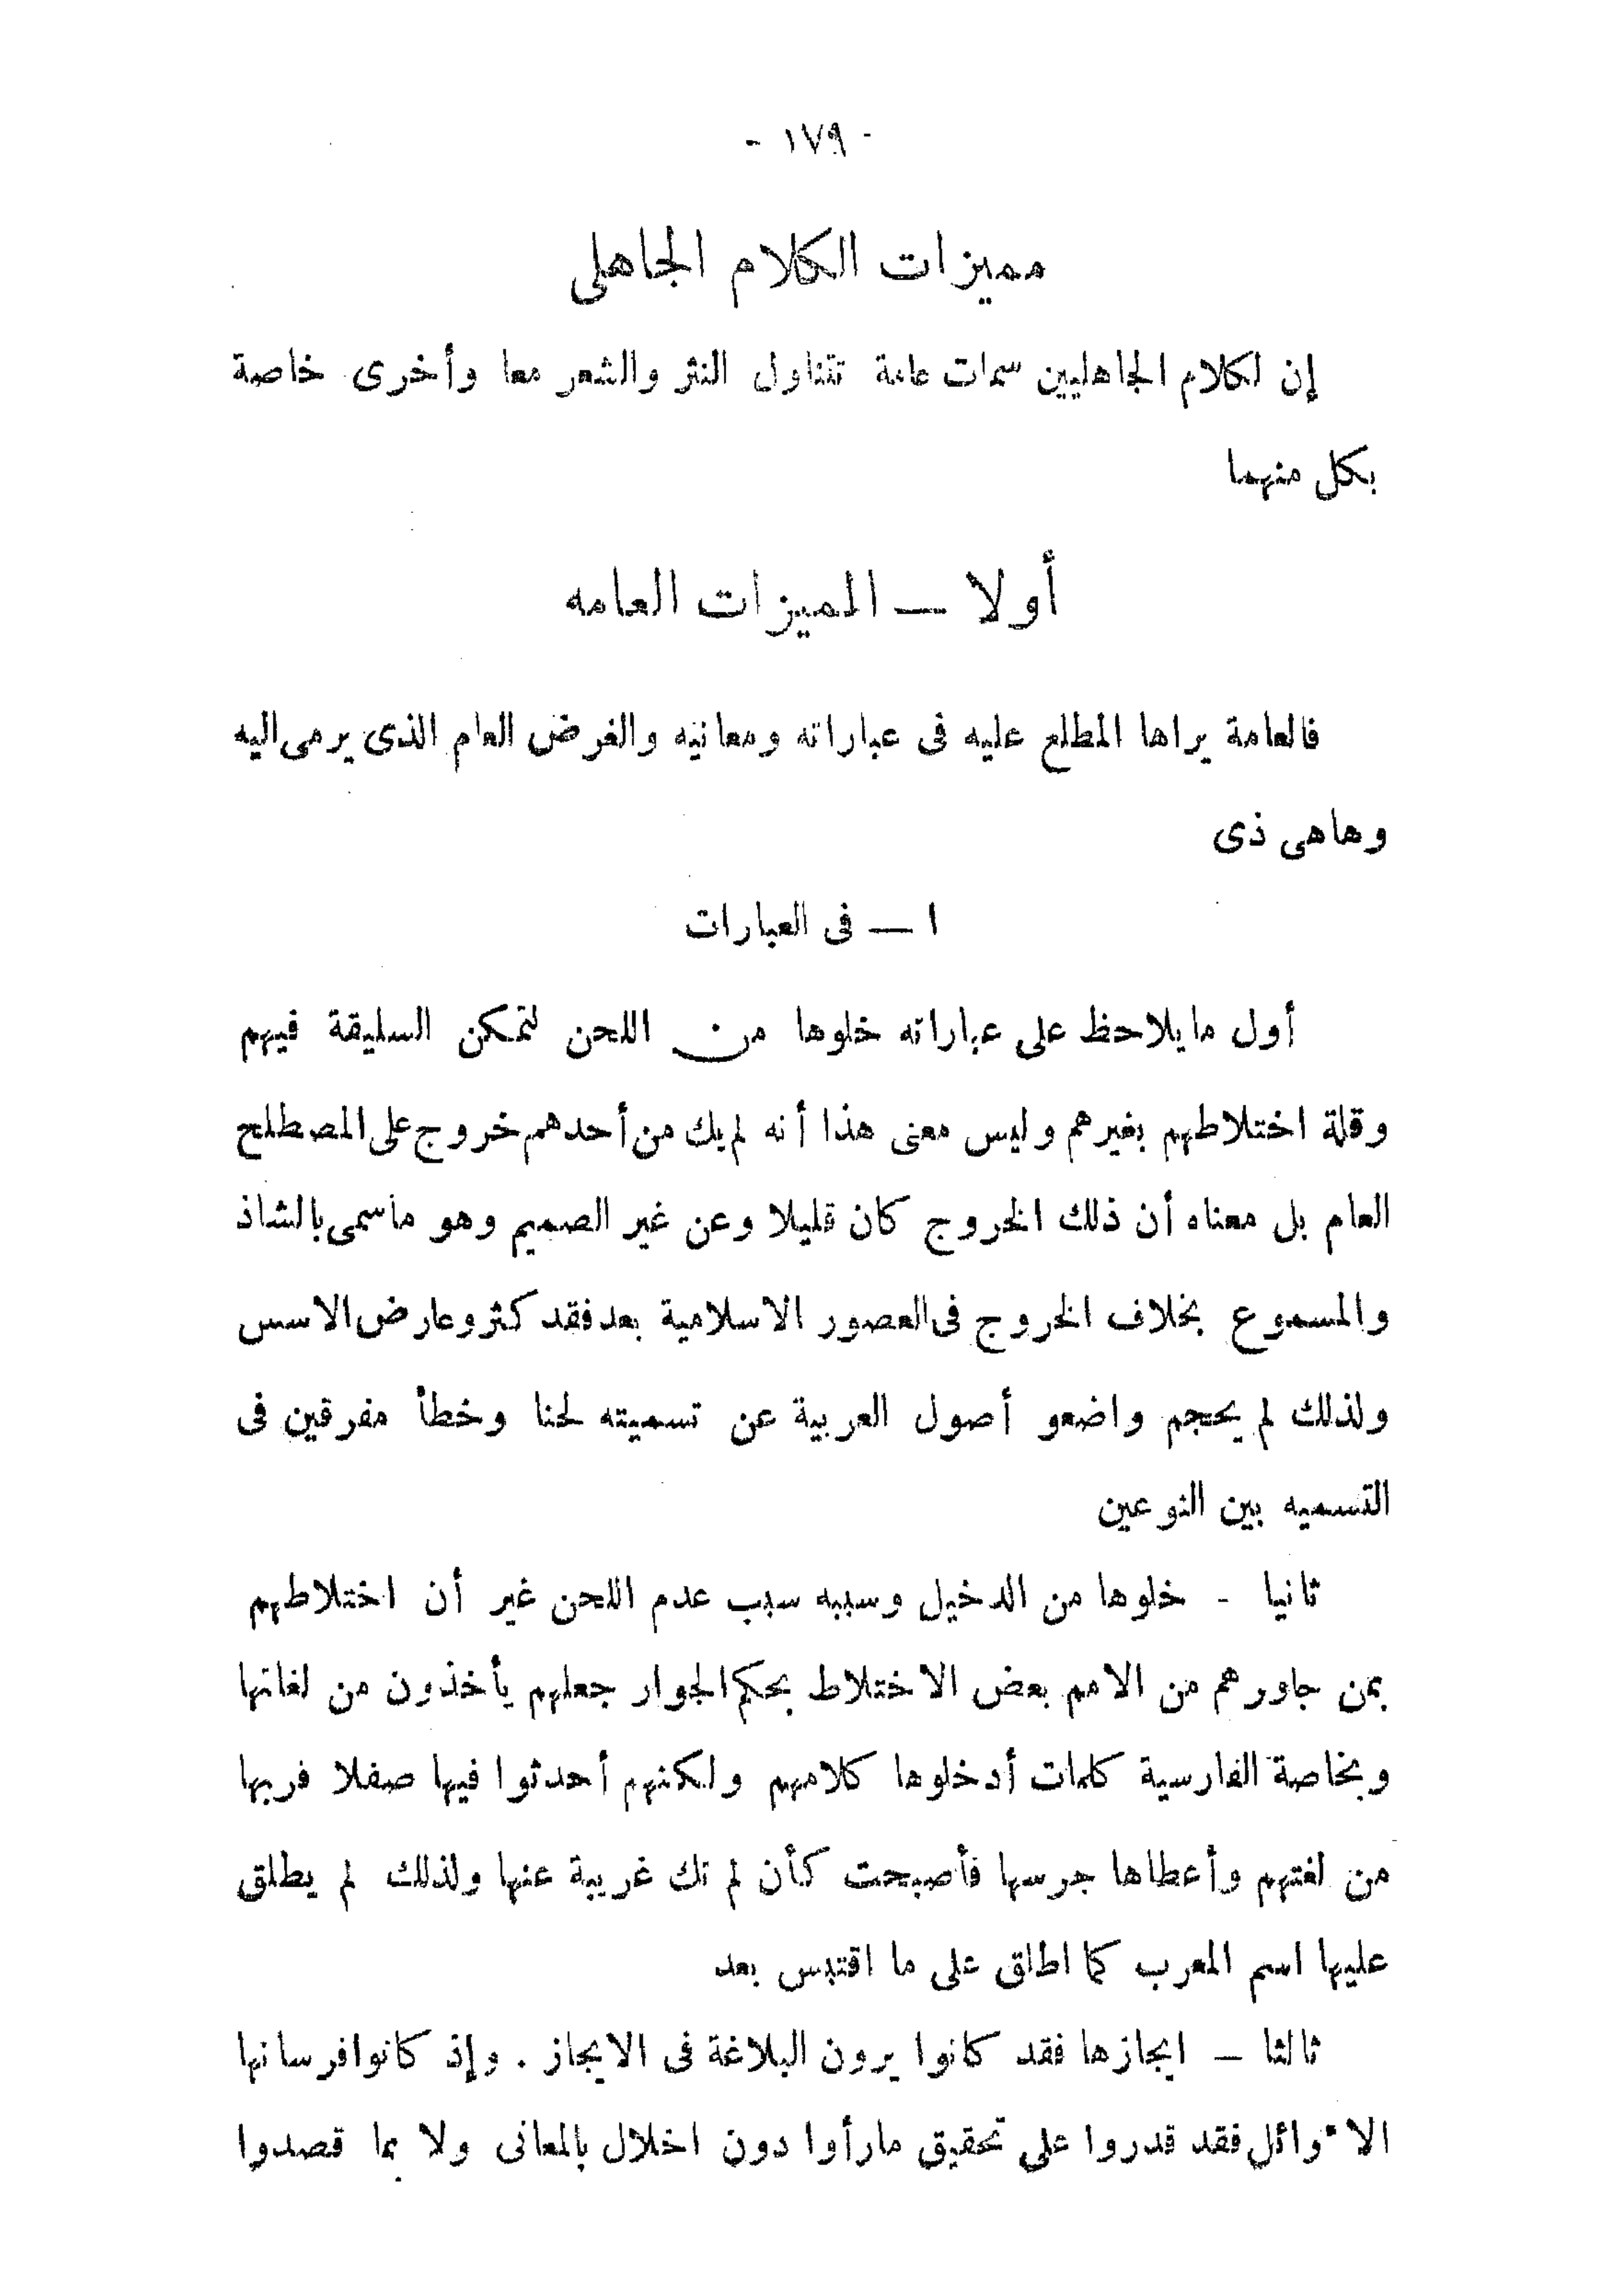 - ١٧٩ -
مميزات الكلام الجاهلى
إن لكلام الجاهليين سمات عامة تتناول النثر والشعر معا وأخرى خاصة
بكل منهما
أولا — المميزات العامه
فالعامة يراها المطلع عليه فى عباراته ومعانيه والغرض العام الذى يرمى اليه
وهاهى ذى
ا — فى العبارات
أول مايلاحظ على عباراته خلوها من اللحن لتمكن السليقة فيهم
وقلة اختلاطهم بغيرهم وليس معنى هذا أنه لم يك من أحدهم خروج على المصطلح
العام بل معناه أن ذلك الخروج كان قليلا وعن غير الصميم وهو ماسمى بالشاذ
والمسموع بخلاف الخروج فى العصور الاسلامية بعد فقد كثر وعارض الاسس
ولذلك لم يحجم واضعو أصول العربية عن تسميته لحنا وخطأ مفرقين فى
التسميه بين النوعين
ثانيا - خلوها من الدخيل وسببه سبب عدم اللحن غير أن اختلاطهم
بمن جاورهم من الامم بعض الاختلاط بحكم الجوار جعلهم يأخذون من لغاتها
وبخاصة الفارسية كلمات أدخلوها كلامهم ولكنهم أحدثوا فيها صقلا قربها
من لغتهم وأعطاها جرسها فأصبحت كأن لم تك غريبة عنها ولذلك لم يطلق
عليها اسم المعرب كما اطلق على ما اقتبس بعد
ثالثا — ايجازها فقد كانوا يرون البلاغة فى الايجاز . وإذ كانوا فرسانها
الأوائل فقد قدروا على تحقيق مارأوا دون اخلال بالمعانى ولا بما قصدوا